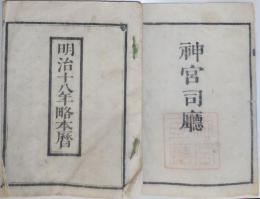 神宮司廳
明治十八年略本暦